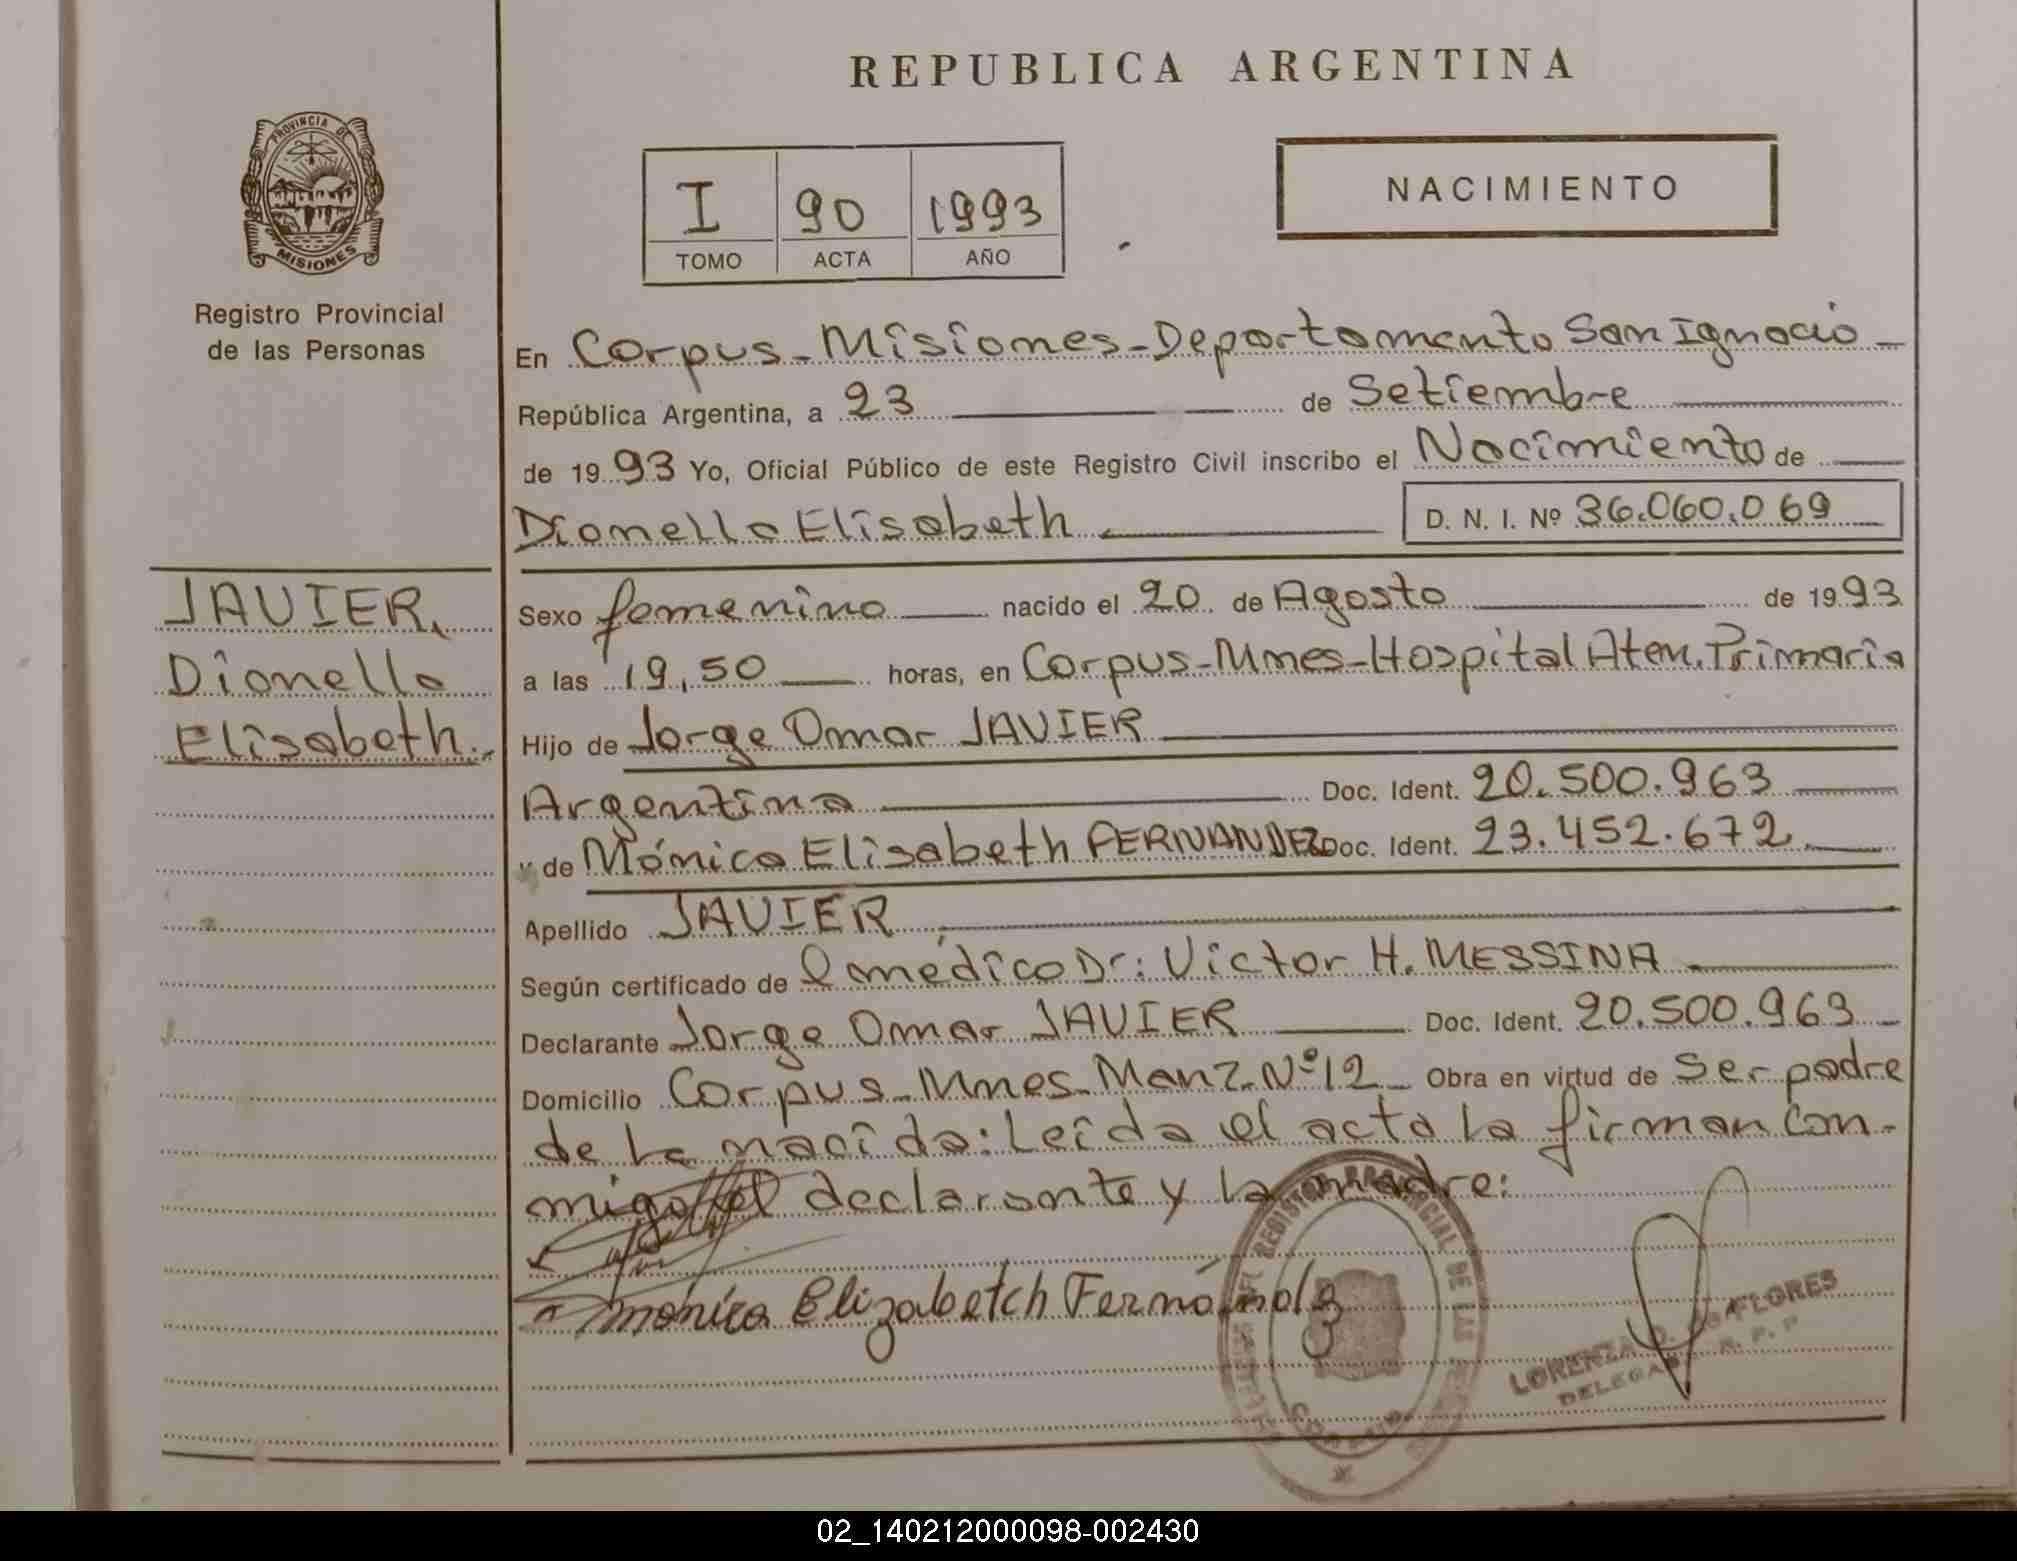 REPUBLICA ARGENTINA
PROVINCIA DE
MISIONES
Registro Provincial
de las Personas
I 90 1993
TOMO ACTA AÑO
NACIMIENTO
En Corpus-Misiones-Departamento San Ignacio-
República Argentina, a 23 de Setiembre
de 1993 Yo, Oficial Público de este Registro Civil inscribo el Nacimiento de
Dionella Elisabeth D. N. I. Nº 36.060.069
JAVIER,
Dionella
Elisabeth.
Sexo femenino nacido el 20 de Agosto de 1993
a las 19,50 horas, en Corpus-Mnes-Hospital Aten. Primaria
Hijo de Jorge Omar JAVIER
Argentina Doc. Ident. 20.500.963
y de Mónica Elisabeth FERNANDEZ Doc. Ident. 23.452.672
Apellido JAVIER
Según certificado de l médico Dr: Victor H. MESSINA
Declarante Jorge Omar JAVIER Doc. Ident. 20.500.963
Domicilio Corpus-Mnes-Manz. Nº12 Obra en virtud de ser padre
de la nacida: Leida el acta la firman con-
migo el declarante y la madre:
Mónica Elizabetch Fernández
REGISTRO PROVINCIAL DE LAS
CORPUS
LORENZA D. DE FLORES
DELEGADA R. P. P.
02_140212000098-002430